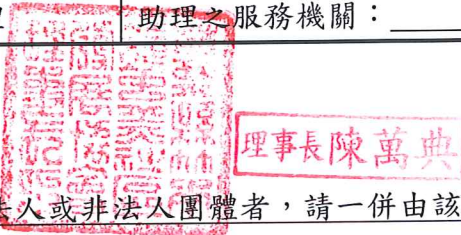 助理之服務機關：
理事長陳萬典
法人或非法人團體者，請一併由該